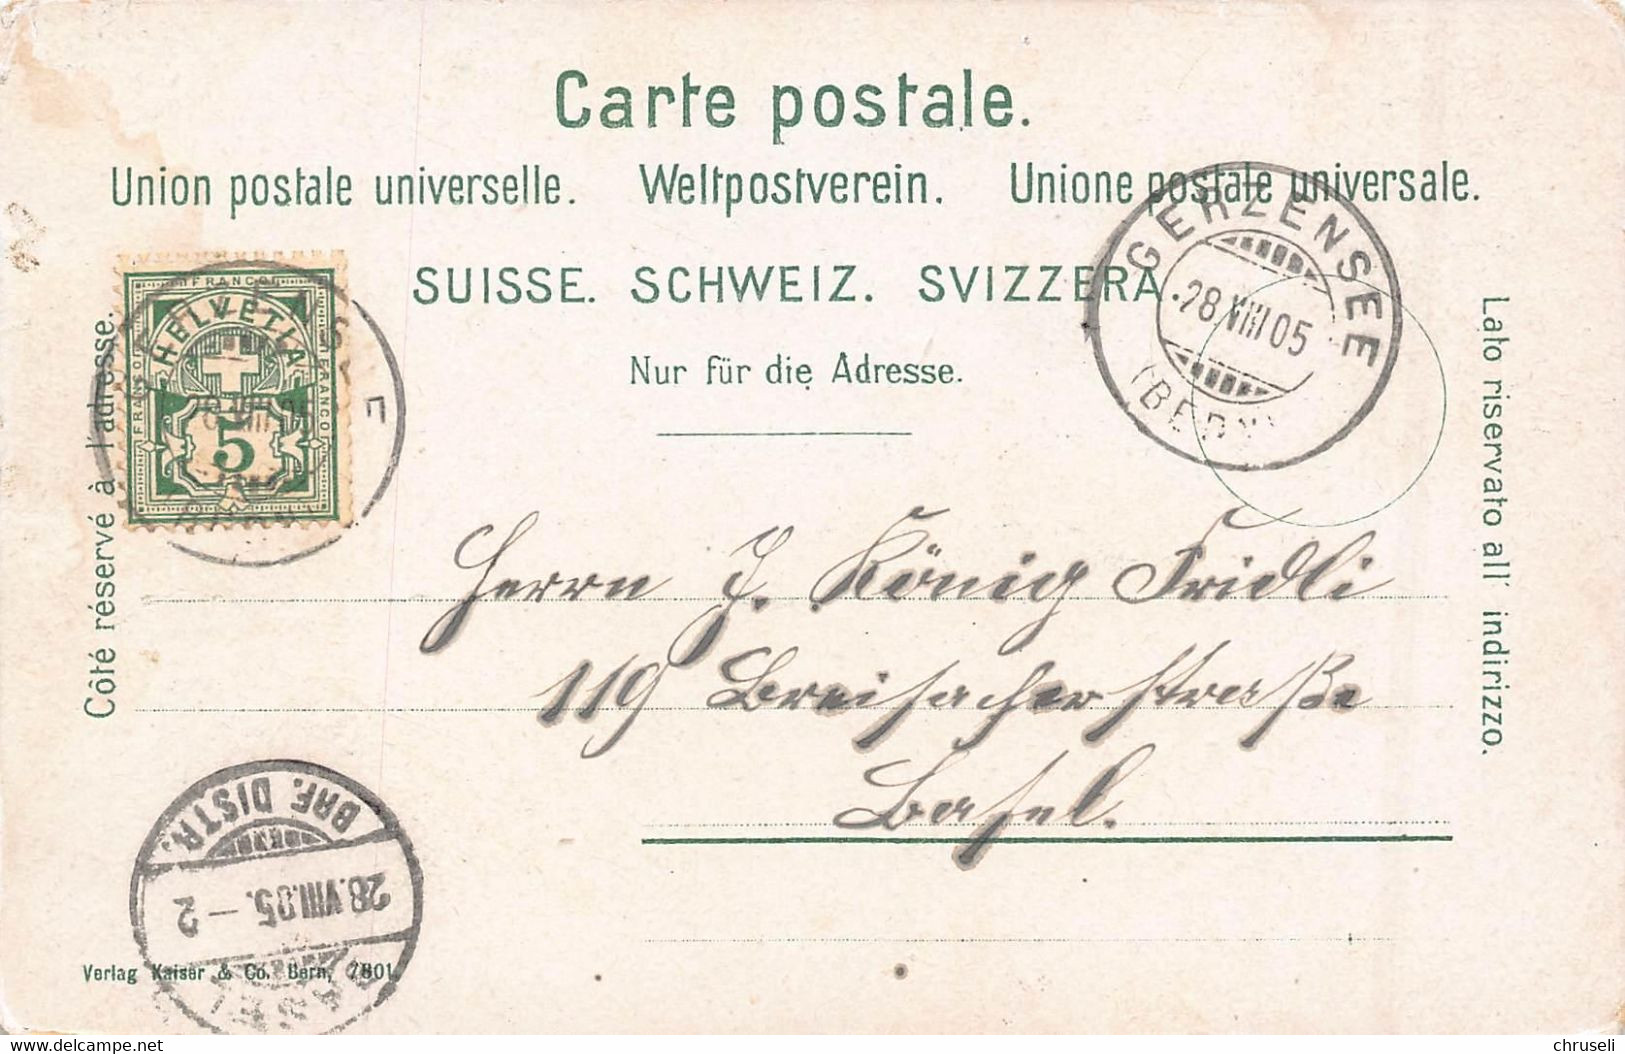 Carte postale.
Union postale universelle. Weltpostverein. Unione postale universale.
SUISSE. SCHWEIZ. SVIZZERA.
Nur für die Adresse.
Côté réservé à l'adresse.
Lato riservato all' indirizzo.
FRANCO
FRANCO
FRANCO
HELVETIA
5
GERZENSEE
28.VIII 05
(BERN)
Herrn J. König Fridli
119 Breisacherstraße
Basel.
BRF. DISTR.
28.VIII.05.-2
BASEL
Verlag Kaiser & Co. Bern, 7801.
www.delcampe.net
chruseli